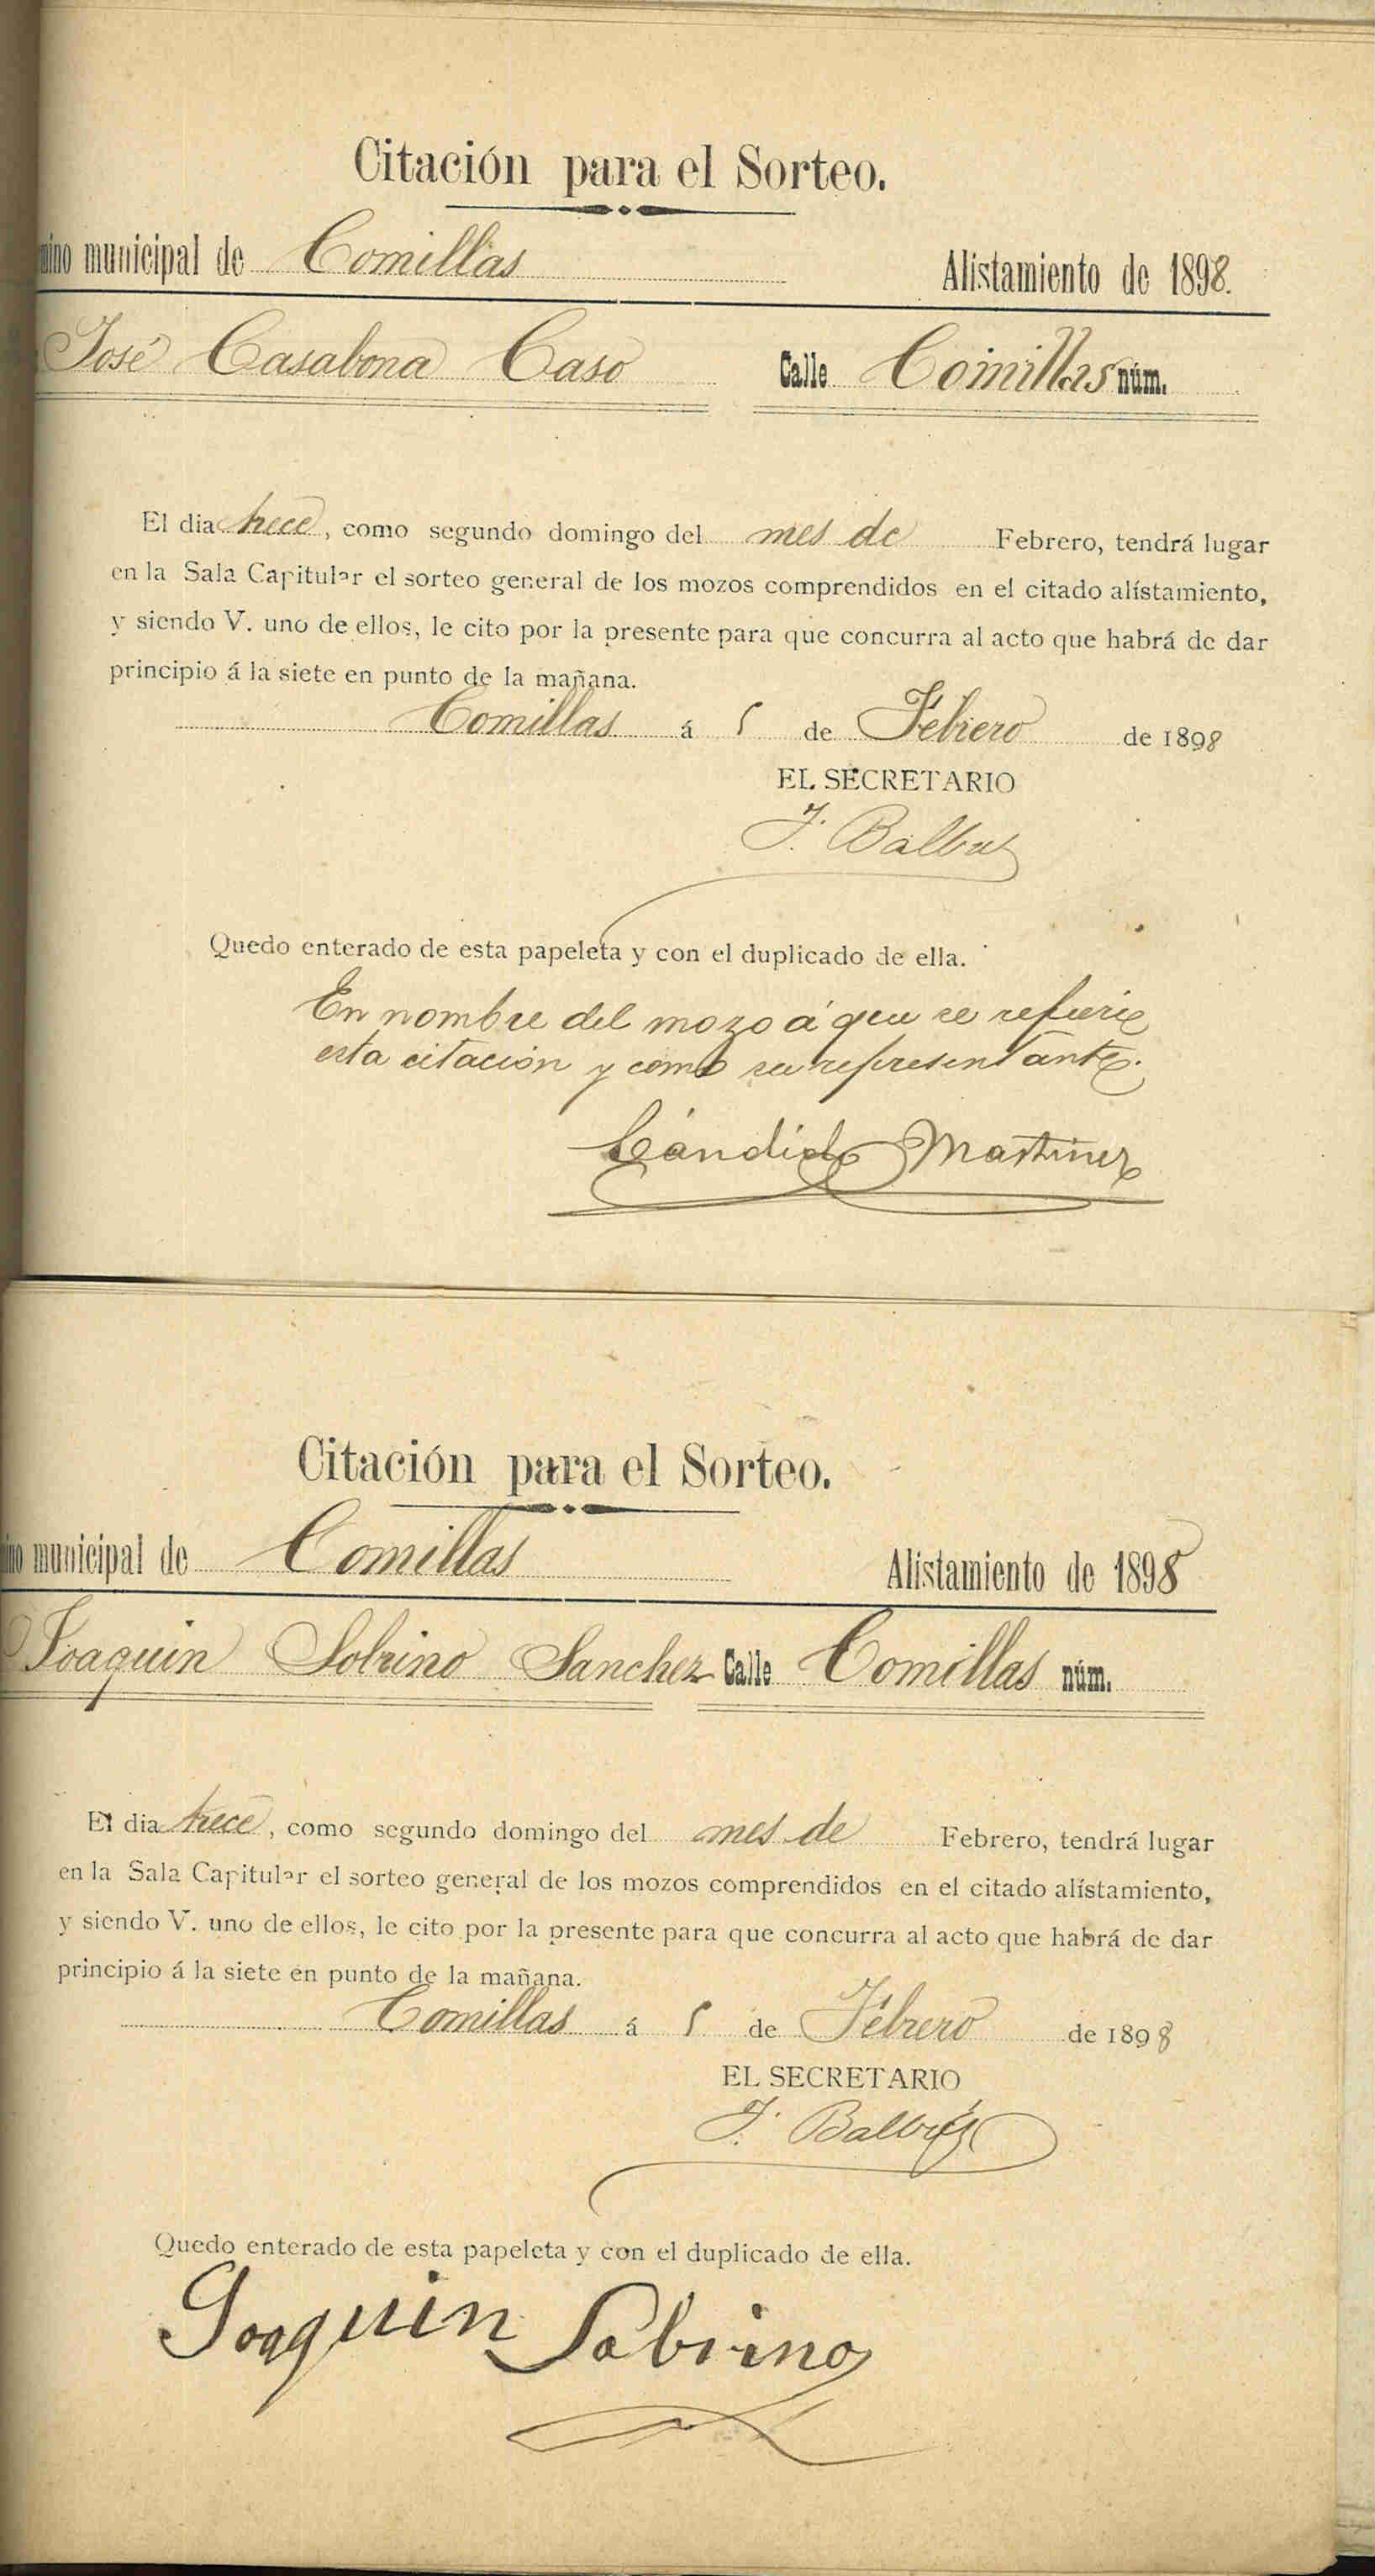 Citación para el Sorteo.
mino municipal de Comillas Alistamiento de 1898.
José Casabona Caso Calle Comillas núm.
El dia trece, como segundo domingo del mes de Febrero, tendrá lugar
en la Sala Capitular el sorteo general de los mozos comprendidos en el citado alístamiento,
y siendo V. uno de ellos, le cito por la presente para que concurra al acto que habrá de dar
principio á la siete en punto de la mañana.
Comillas á 5 de Febrero de 1898
EL SECRETARIO
J. Balbás
Quedo enterado de esta papeleta y con el duplicado de ella.
En nombre del mozo á que se refiere
esta citación y como su representante.
Cándido Martinez
Citación para el Sorteo.
mino municipal de Comillas Alistamiento de 1898
Joaquin Sobrino Sanchez Calle Comillas núm.
El dia trece, como segundo domingo del mes de Febrero, tendrá lugar
en la Sala Capitular el sorteo general de los mozos comprendidos en el citado alístamiento,
y siendo V. uno de ellos, le cito por la presente para que concurra al acto que habrá de dar
principio á la siete en punto de la mañana.
Comillas á 5 de Febrero de 1898
EL SECRETARIO
J. Balbás
Quedo enterado de esta papeleta y con el duplicado de ella.
Joaquin Sobrino